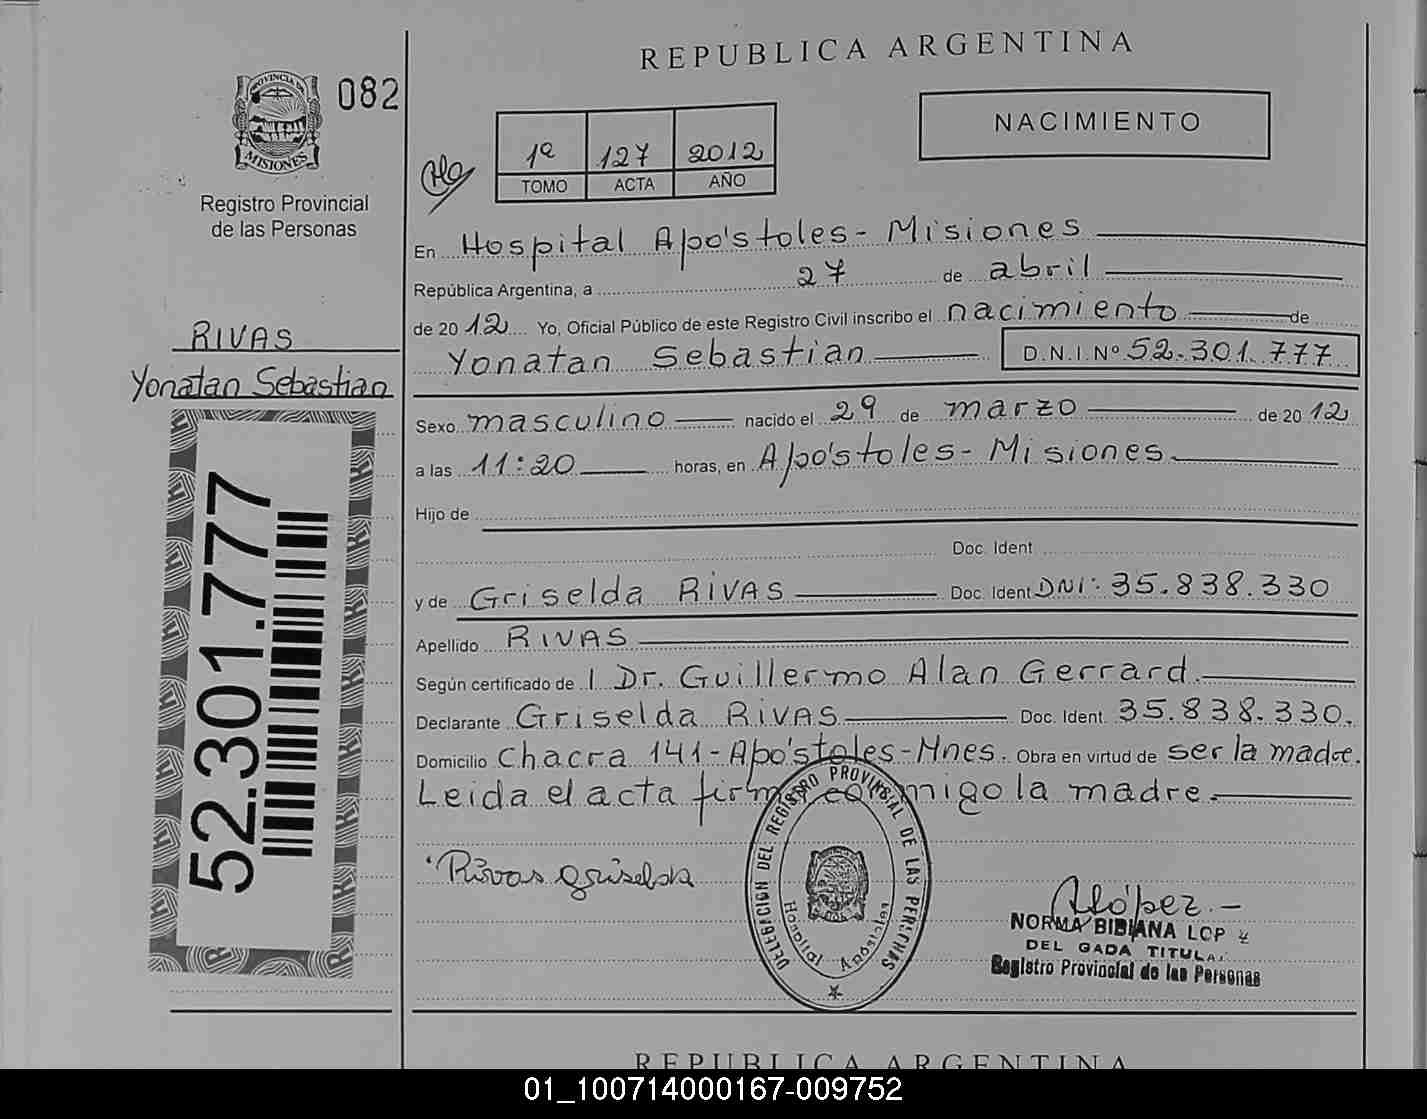 REPUBLICA ARGENTINA
PROVINCIA DE
MISIONES
082
Registro Provincial
de las Personas
1ª 127 2012
TOMO ACTA AÑO
NACIMIENTO
En Hospital Apóstoles - Misiones
República Argentina, a 27 de abril
de 2012 Yo, Oficial Público de este Registro Civil inscribo el nacimiento de
Yonatan Sebastian D.N.I.Nº 52.301.777
RIVAS
Yonatan Sebastian
52.301.777
Sexo masculino nacido el 29 de marzo de 2012
a las 11:20 horas, en Apóstoles - Misiones
Hijo de
Doc. Ident
y de Griselda RIVAS Doc. Ident DNI: 35.838.330
Apellido RIVAS
Según certificado de l Dr. Guillermo Alan Gerrard
Declarante Griselda RIVAS Doc. Ident. 35.838.330.
Domicilio Chacra 141 - Apóstoles - Mnes. Obra en virtud de ser la madre.
Leida el acta firma conmigo la madre.
Rivas Griselda
DELEGACION DEL REGISTRO PROVINCIAL DE LAS PERSONAS
Hospital Apóstoles
NLópez.-
NORMA BIBIANA LOP Z
DEL GADA TITULA
Registro Provincial de las Personas
REPUBLICA ARGENTINA
01_100714000167-009752